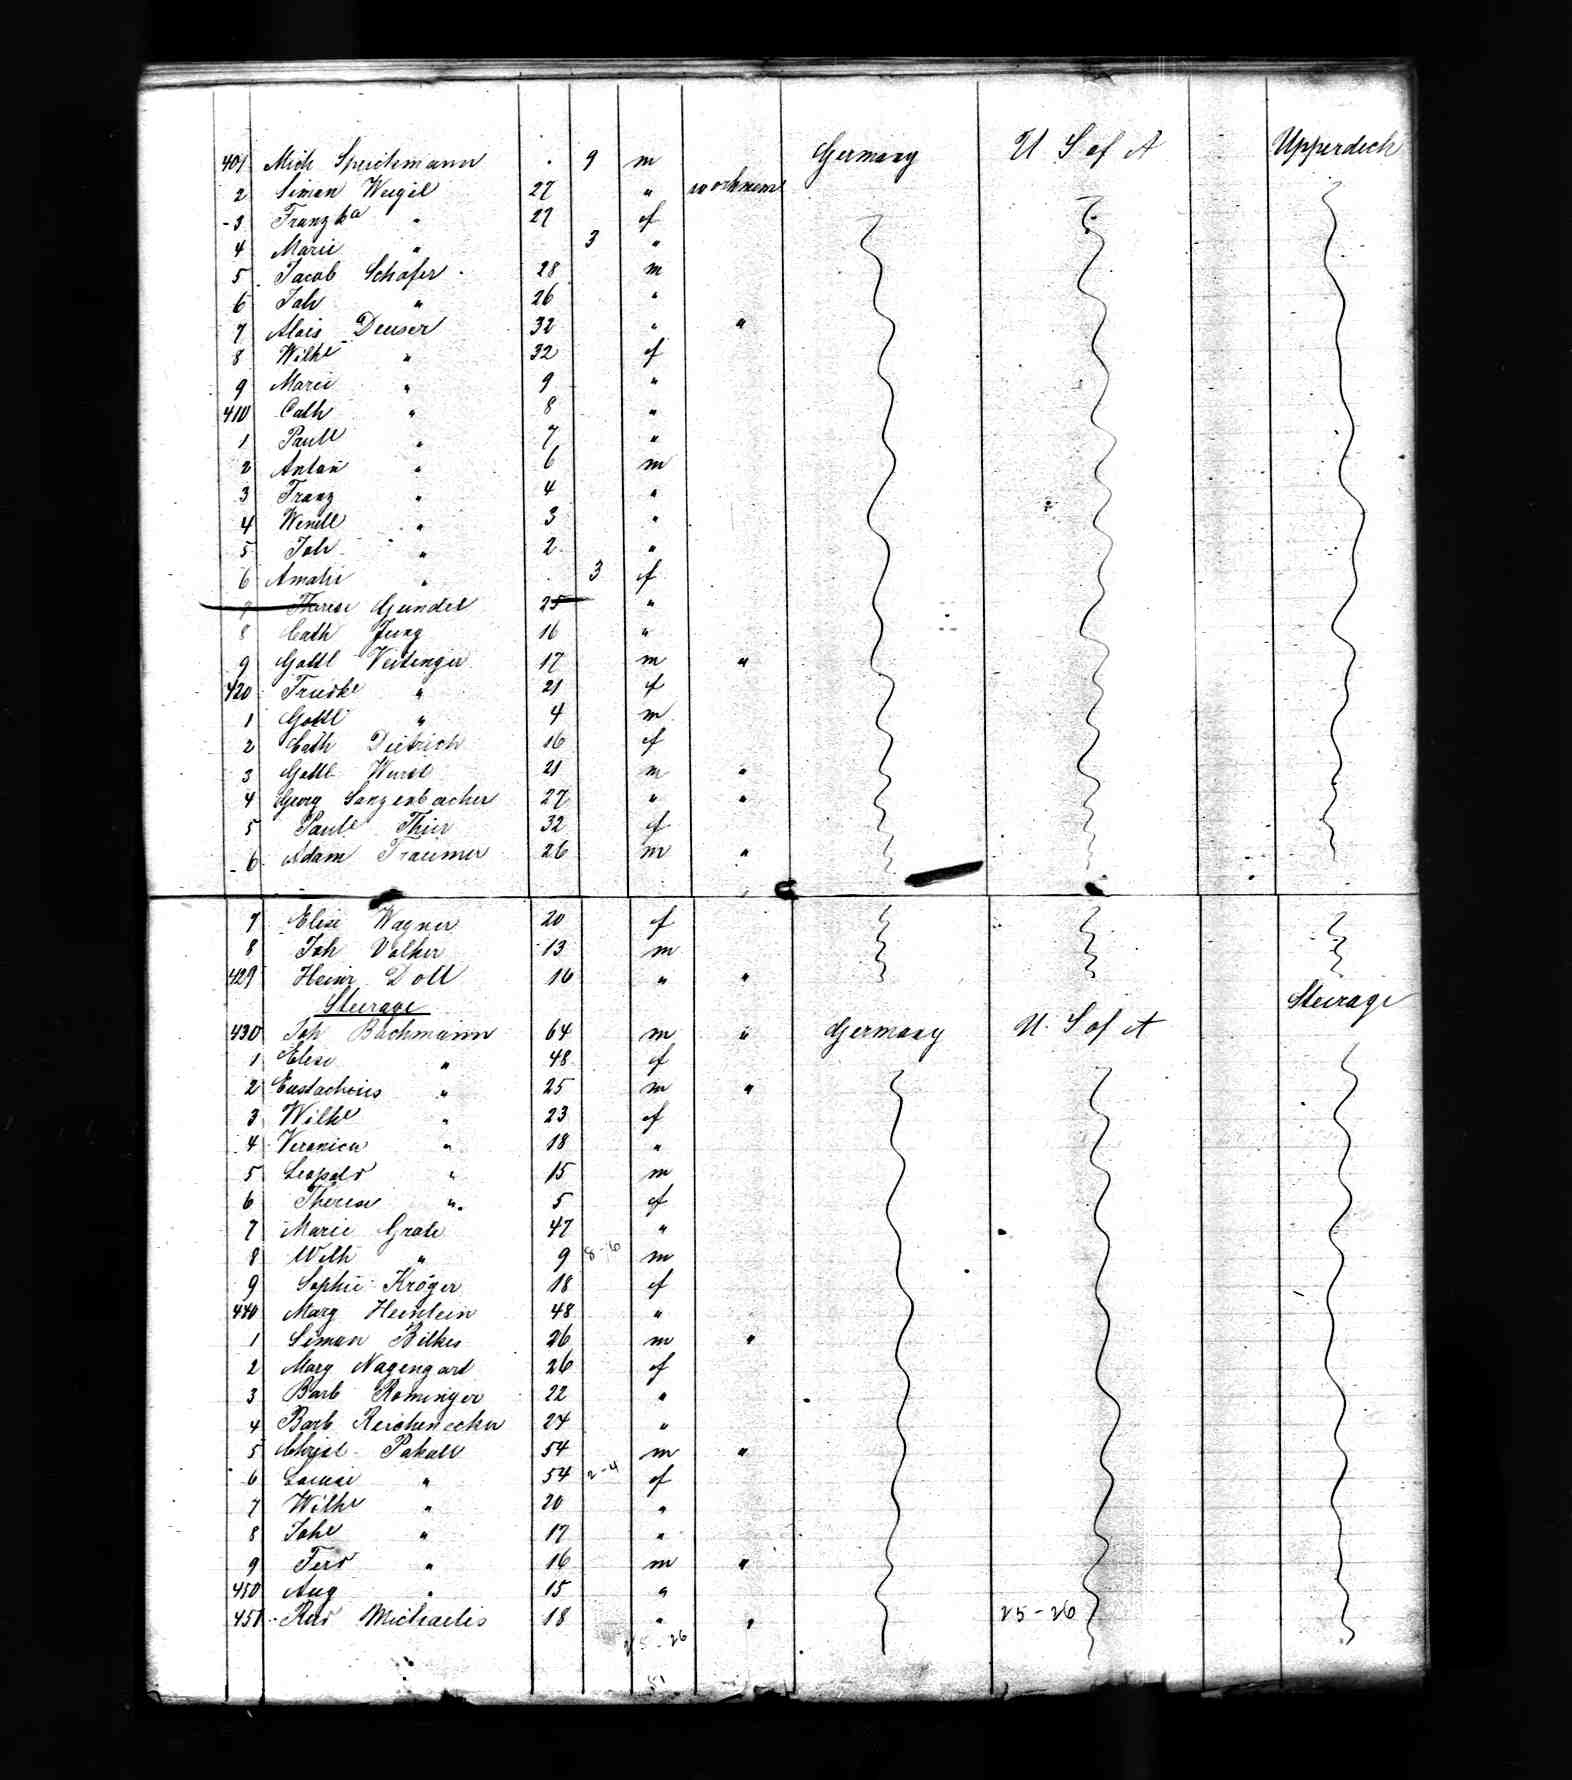 401 Mich Speckmann . 9 m Germany U S of A Upperdeck
2 Simon Weigel 27 " workmen
3 Franzka " 27 f
4 Marie " 3 "
5 Jacob Schäfer 28 m
6 Joh " 26 "
7 Alois Deuser 32 " "
8 Wilhe " 32 f
9 Marie " 9 "
410 Cath " 8 "
1 Paule " 7 "
2 Anton " 6 m
3 Franz " 4 "
4 Wendl " 3 "
5 Joh " 2 "
6 Amalie " . 3 f
7 Therese Gundel 25 "
8 Cath Jung 16 "
9 Gottl Veitenger 17 m "
420 Friedke " 21 f
1 Gottl " 4 m
2 Cath Dietrich 16 f
3 Gottl Wurst 21 m "
4 Georg Sanzenbacher 27 " "
5 Paule Thier 32 f
6 Adam Traumer 26 m "
7 Elise Wagner 20 f
8 Joh Volker 13 m
429 Heinr Doll 16 " "
Steerage Steerage
430 Joh Bachmann 64 m " Germany U. S of A
1 Elise " 48 f
2 Eustachius " 25 m "
3 Wilhe " 23 f
4 Veronica " 18 "
5 Leopold " 15 m
6 Therese " 5 f
7 Marie Grote 47 "
8 Wilh " 9 8-6 m
9 Sophie Kröger 18 f
440 Marg Heinlein 48 "
1 Simon Bilkes 26 m "
2 Marg Nagengard 26 f
3 Barb Rominger 22 "
4 Barb Reichenecker 24 "
5 Christ Pakall 54 m "
6 Louise " 54 2-4 f
7 Wilhe " 20 "
8 Johe " 17 "
9 Ferd " 16 m "
450 Aug " 15 "
451 Rud Michaelis 18 " " 25-26
25-26
51